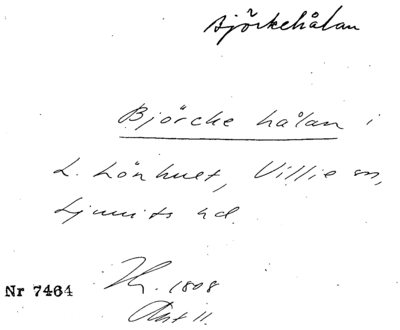 Björkehålan
Björcke hålan i
L. Lönhult, Villie sn,
Ljunits hd.
Nr 7464
1808
Akt 11.